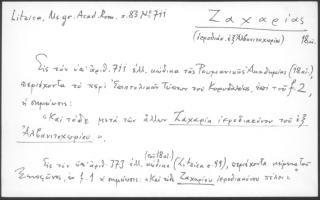 Litzica, Ms gr. Acad. Rom. σ. 83 Nº 711
Ζαχαρίας
(ιεροδιάκ. ἐξ Ἀλβανιτοχωρίου) 18αι.
Εἰς τὸν ὑπ' ἀριθ. 711 ἑλλ. κώδικα τῆς Ρουμανικῆς Ἀκαδημίας (18 αι.),
περιέχοντα τὸ περὶ Ἐπιστολικῶν Τύπων τοῦ Κορυδαλέως, ἐπὶ τοῦ f. 2,
ἡ σημείωσις:
«Καὶ τόδε μετὰ τῶν ἄλλων Ζαχαρία ἱεροδιακόνου τοῦ ἐξ
Ἀλβανιτοχωρίου».
Εἰς τὸν ὑπ' ἀριθ. 373 ἑλλ. κώδικα (τοῦ 18 αι.) (Litzica σ. 99), περιέχοντα κείμενα τοῦ
Ξενοφῶντος, ἐν f. 1 ἡ σημείωσις: «Καὶ τόδε Ζαχαρίου ἱεροδιακόνου πέλει».